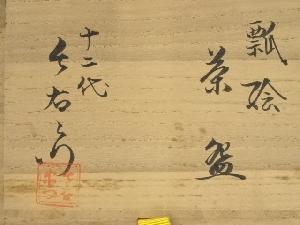 瓢絵
茶盌
十二代
右衛門